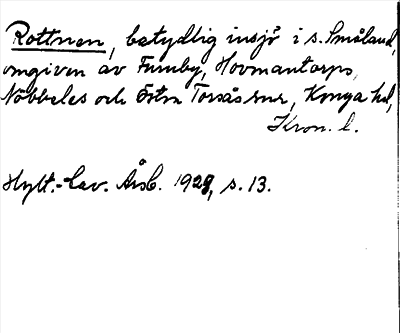 Rottnen, betydlig insjö i s. Småland,
omgiven av Furuby, Hovmantorps,
Nöbbeles och Östra Torsås snr, Konga hd,
Kron. l.
Hylt.-Cav. Årsb. 1928, s. 13.